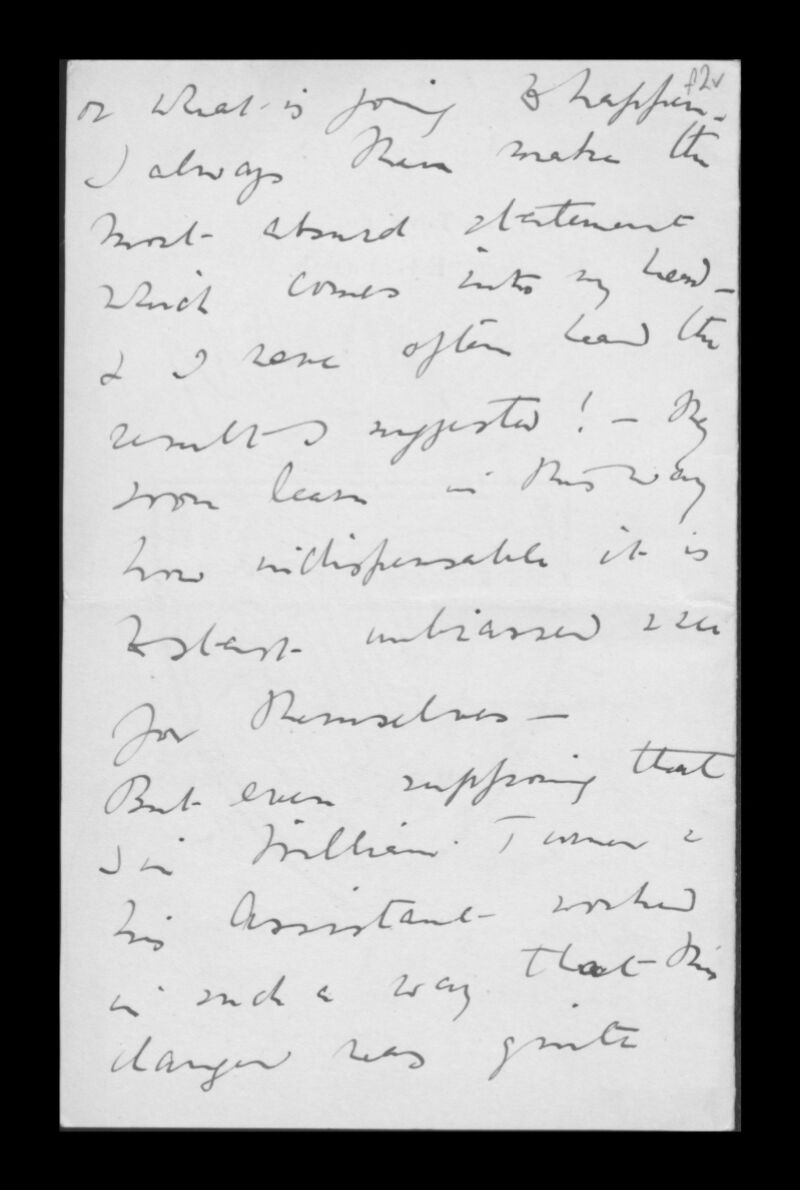 f2v
or what is going to happen.
I always then make the
most absurd statement
which comes into my head –
& I have often had the
result I suggested! – They
soon learn in this way
how indispensable it is
to start unbiassed & see
for themselves –
But even supposing that
Sir William Turner &
his Assistant worked
in such a way that this
danger was quite